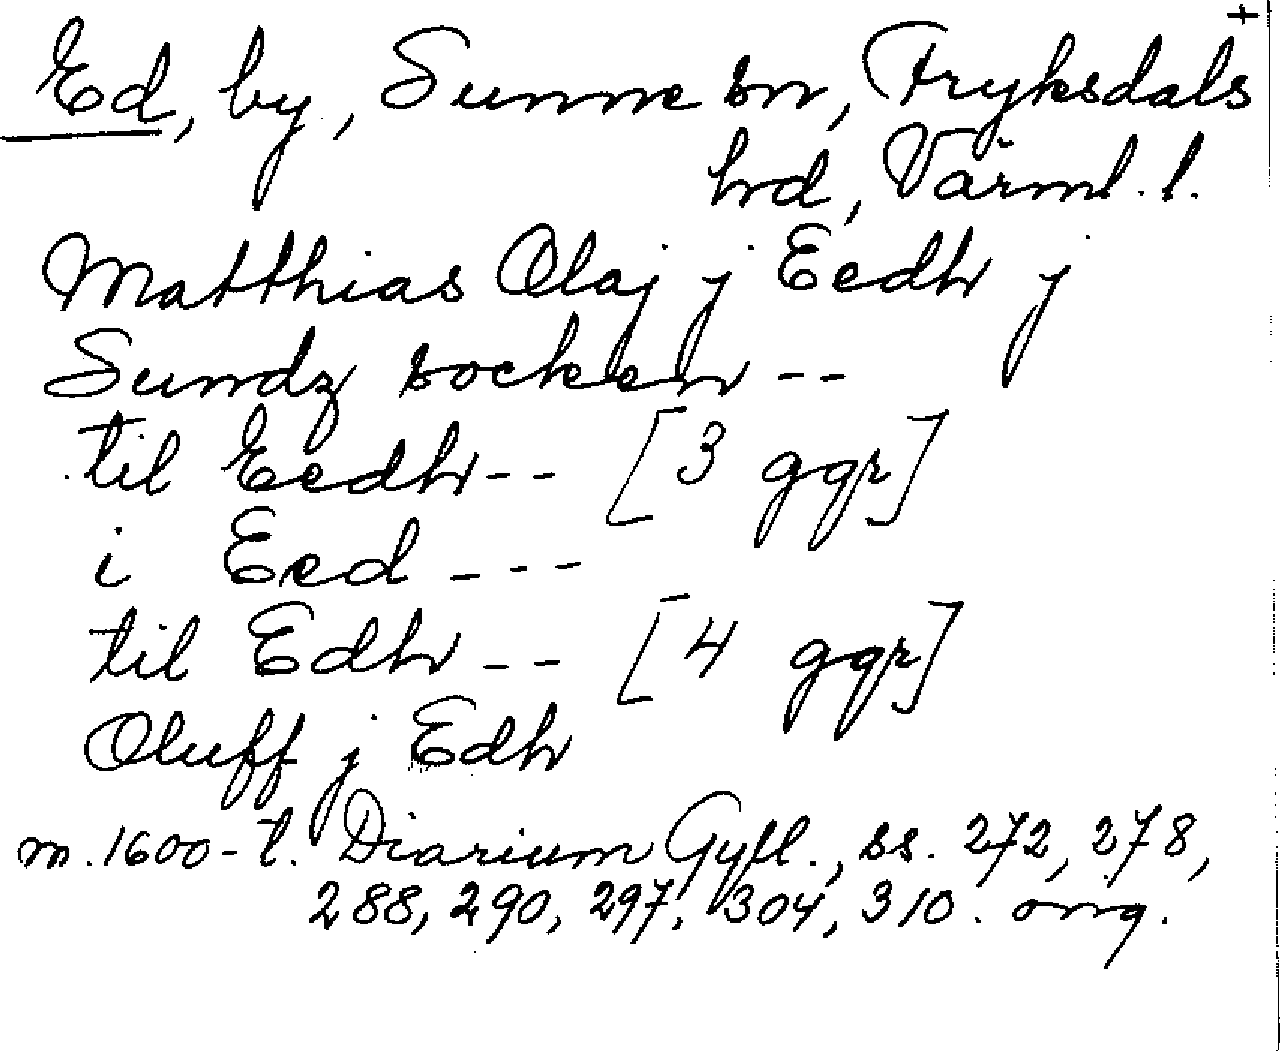 +
Ed, by, Sunne sn, Fryksdals
hd, Värml. l.
Matthias Olaj j Eedh j
Sundz socken --
til Eedh -- [3 ggr]
i Eed ---
til Edh -- [4 ggr]
Oluff j Edh
m. 1600-t. Diarium Gyll., ss. 272, 278,
288, 290, 297, 304, 310. orig.